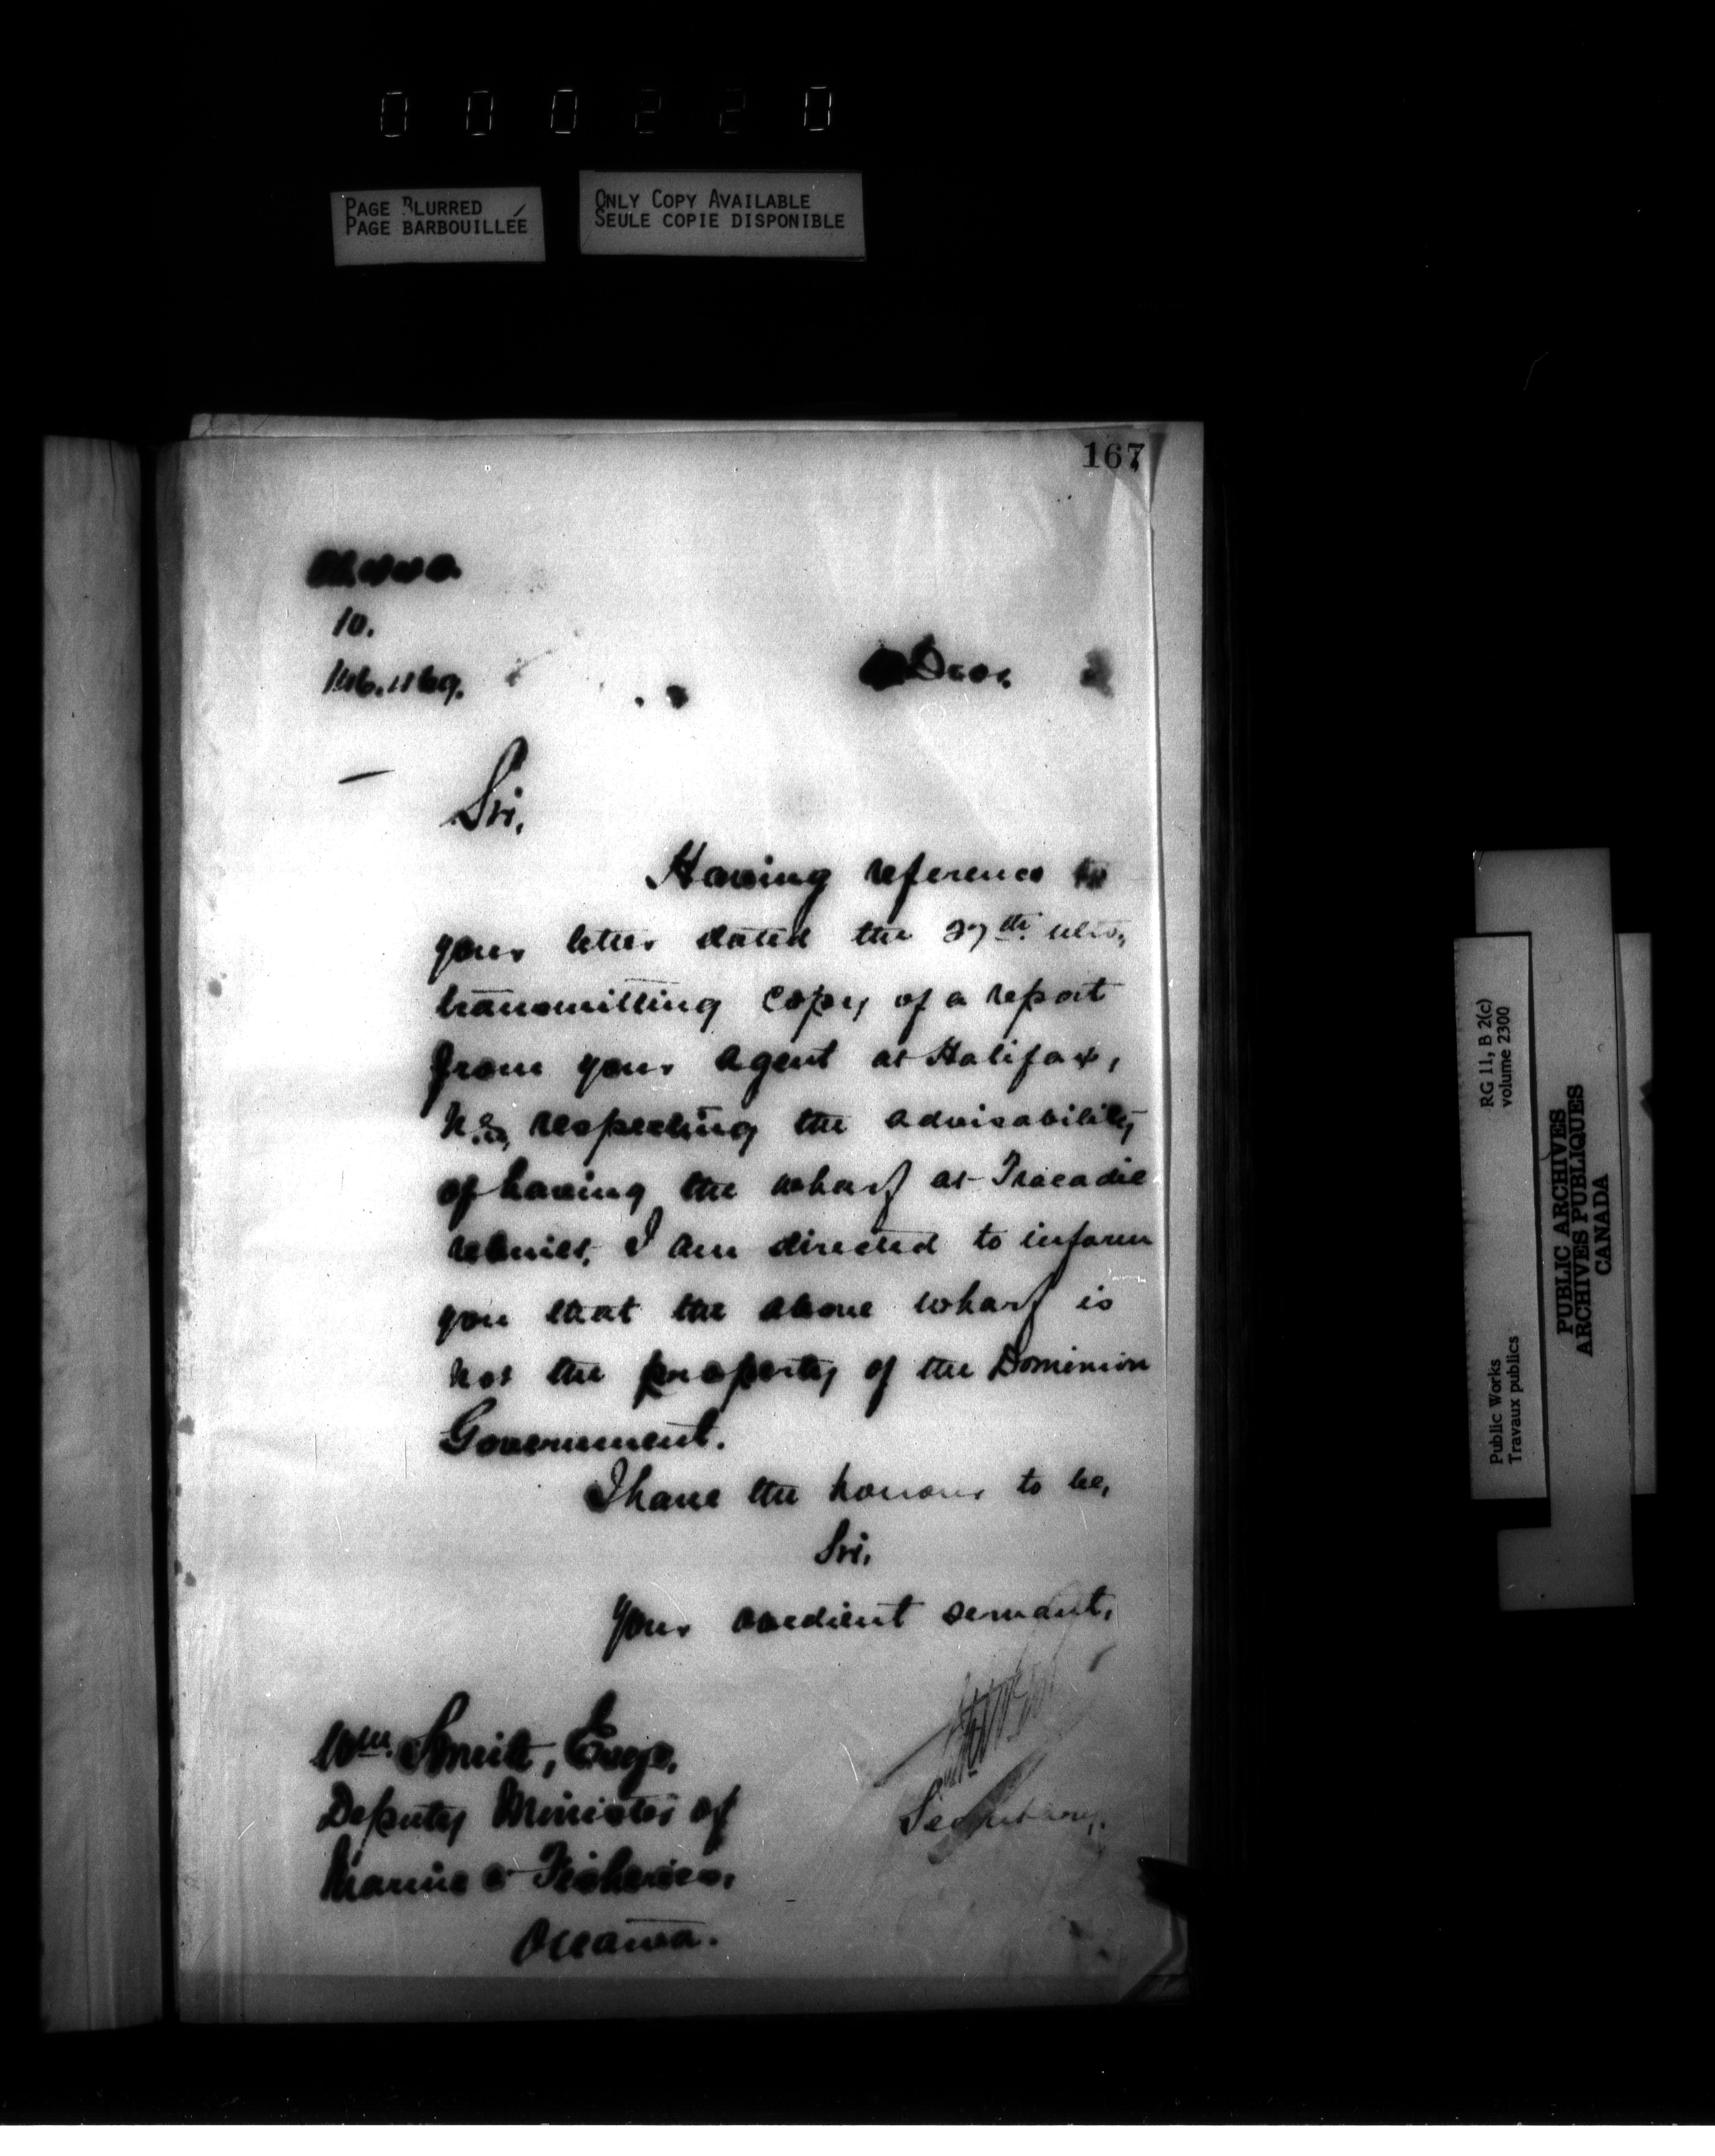 0 0 0 2 2 0
PAGE BLURRED
PAGE BARBOUILLÉE
ONLY COPY AVAILABLE
SEULE COPIE DISPONIBLE
167
10.
Dec.
Sir,
Having reference to
your letter dated the 27th ulto,
transmitting copy of a report
from your agent at Halifax,
N.S, respecting the advisability
of having the wharf at Tracadie
rebuilt, I am directed to inform
you that the above wharf is
not the property of the Dominion
Government.
I have the honour to be,
Sir,
Your obedient servant,
Secretary.
Wm. Smith, Esqr.
Deputy Minister of
Marine & Fisheries,
Ottawa.
RG 11, B 2(c)
volume 2300
Public Works
Travaux publics
PUBLIC ARCHIVES
ARCHIVES PUBLIQUES
CANADA